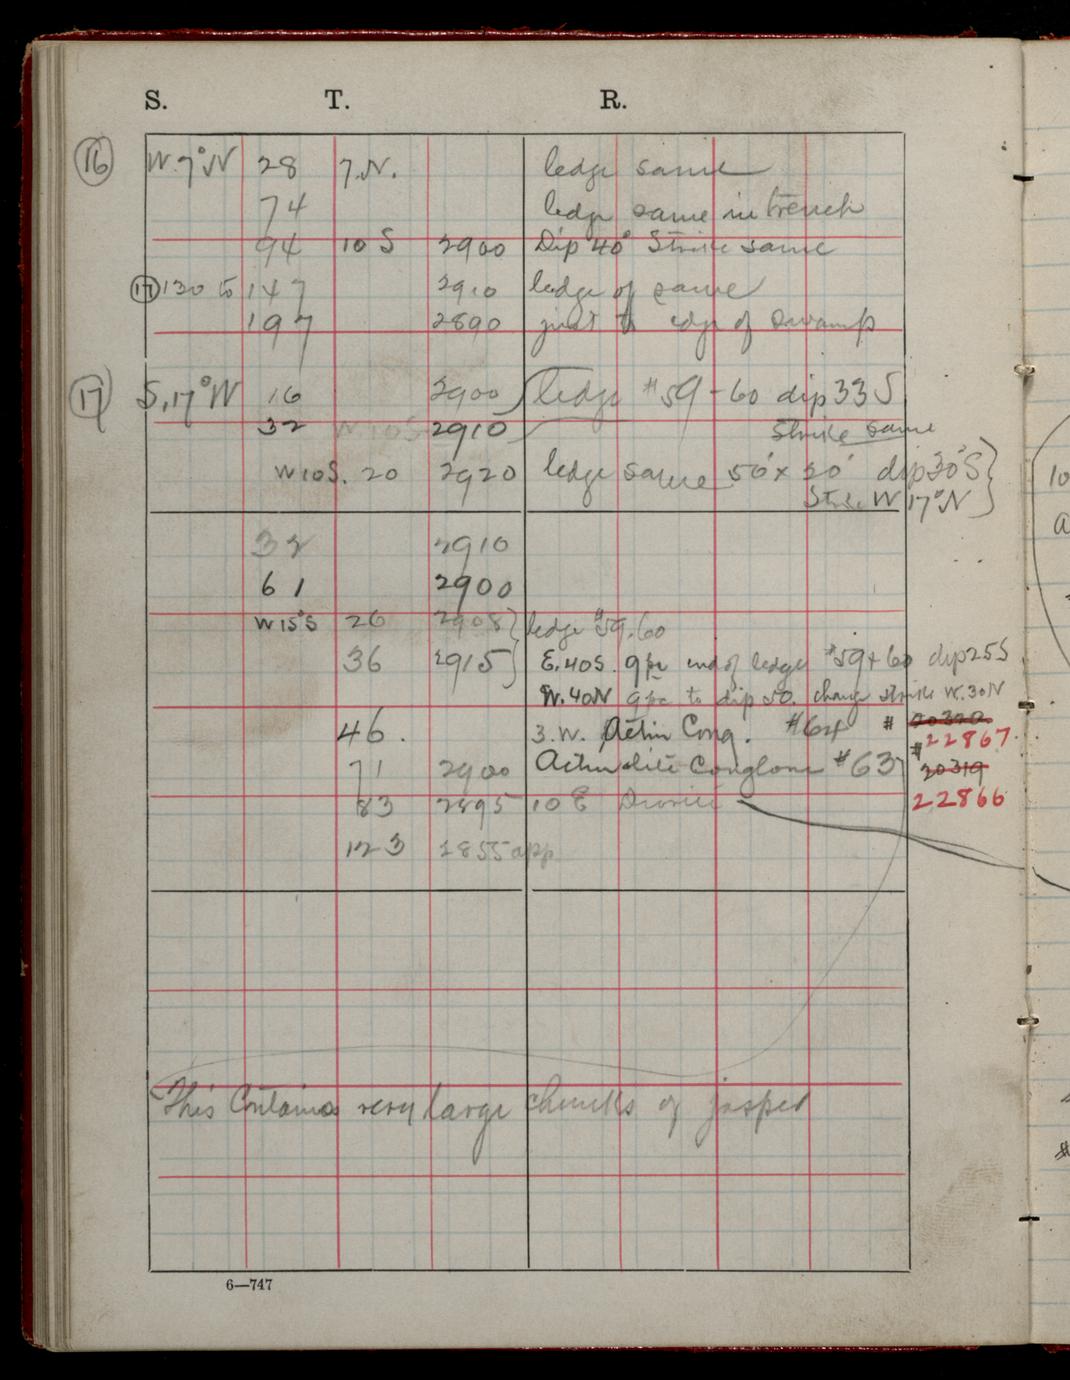 S. T. R.
16 W. 7° N 28 7. N. ledge same
74 ledge same in trench
94 10 S 2900 Dip 40° Strike same
17 130 to 147 2910 ledge of same
197 2890 just to edge of swamp
17 S. 17° W 16 2900 ledge #59-60 dip 33 S
32 W 10 S 2910 Strike same
W 10 S. 20 2920 ledge same 50' x 20' dip 30° S
Strike W 17° N
32 2910
61 2900
W 15° S 26 2908 ledge #59.60
36 2915 E. 40 S. 9 pc end of ledge #59+60 dip 25 S
W. 40 N 9 pc to dip 50. change strike W. 30 N
46. 3. W. Actin Cong. #64 # 20320
#22867.
71 2900 Actinolite Conglom #63 20319
83 2895 10 E Diorite 22866
123 2855 app
This Contains very large chunks of jasper
6—747
10
a
#